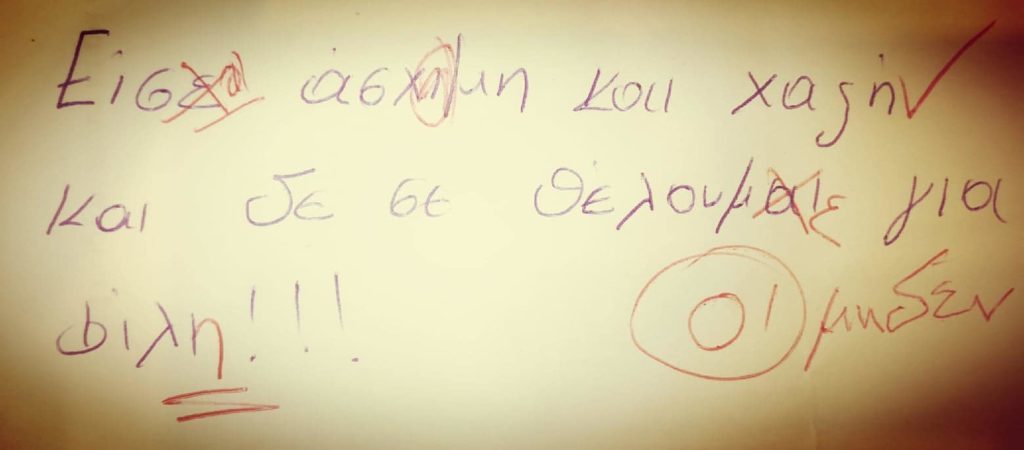 Είσεαι άσχημη και χαζή✓
και δε σε θέλουμαιε για
φίλη!!! 0 μηδεν